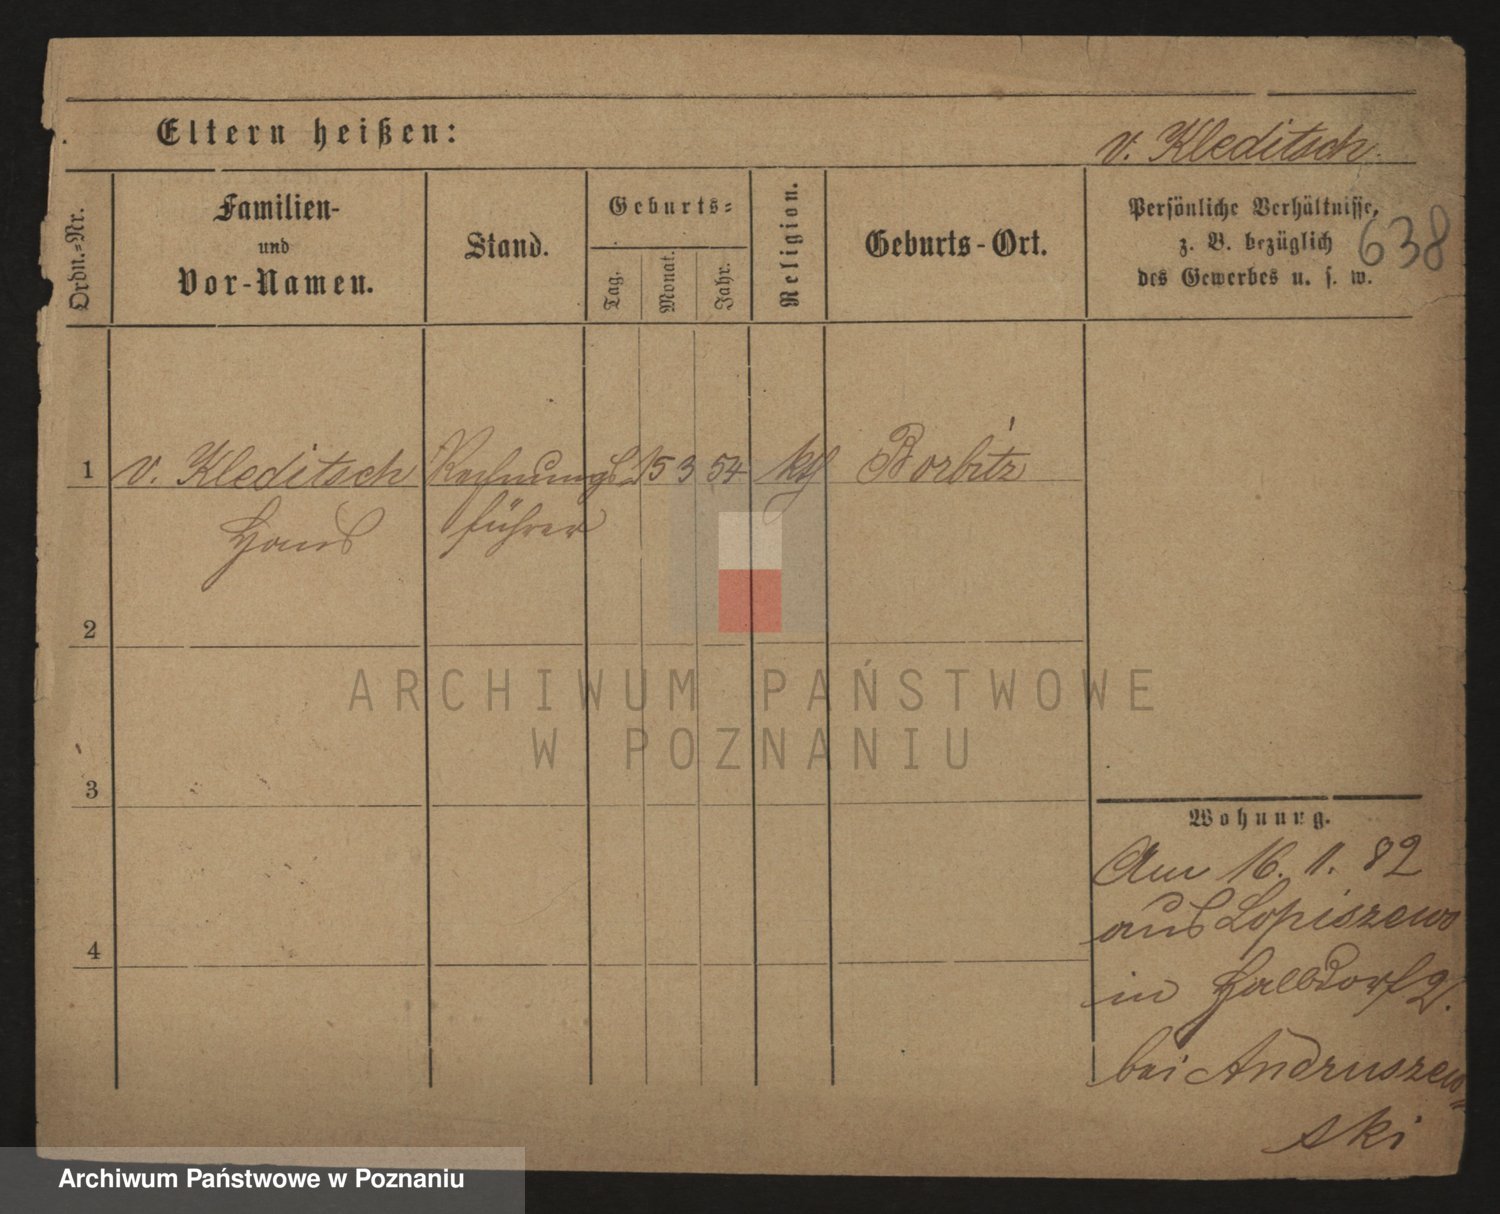 Eltern heißen:
v. Kleditsch.
Ordn.-Nr.
Familien-
und
Vor-Namen.
Stand.
Geburts-
Tag.
Monat.
Jahr.
Religion.
Geburts-Ort.
Persönliche Verhältnisse,
z. B. bezüglich
des Gewerbes u. s. w.
638
1 v. Kleditsch Rechnungs- 15 3 54 kth Borbitz
Hans führer
2
3
4
Wohnung.
Am 16. 1. 82
aus Lopiszewo
in Halbdorf 2.
bei Andruszew-
ski
ARCHIWUM PAŃSTWOWE
W POZNANIU
Archiwum Państwowe w Poznaniu